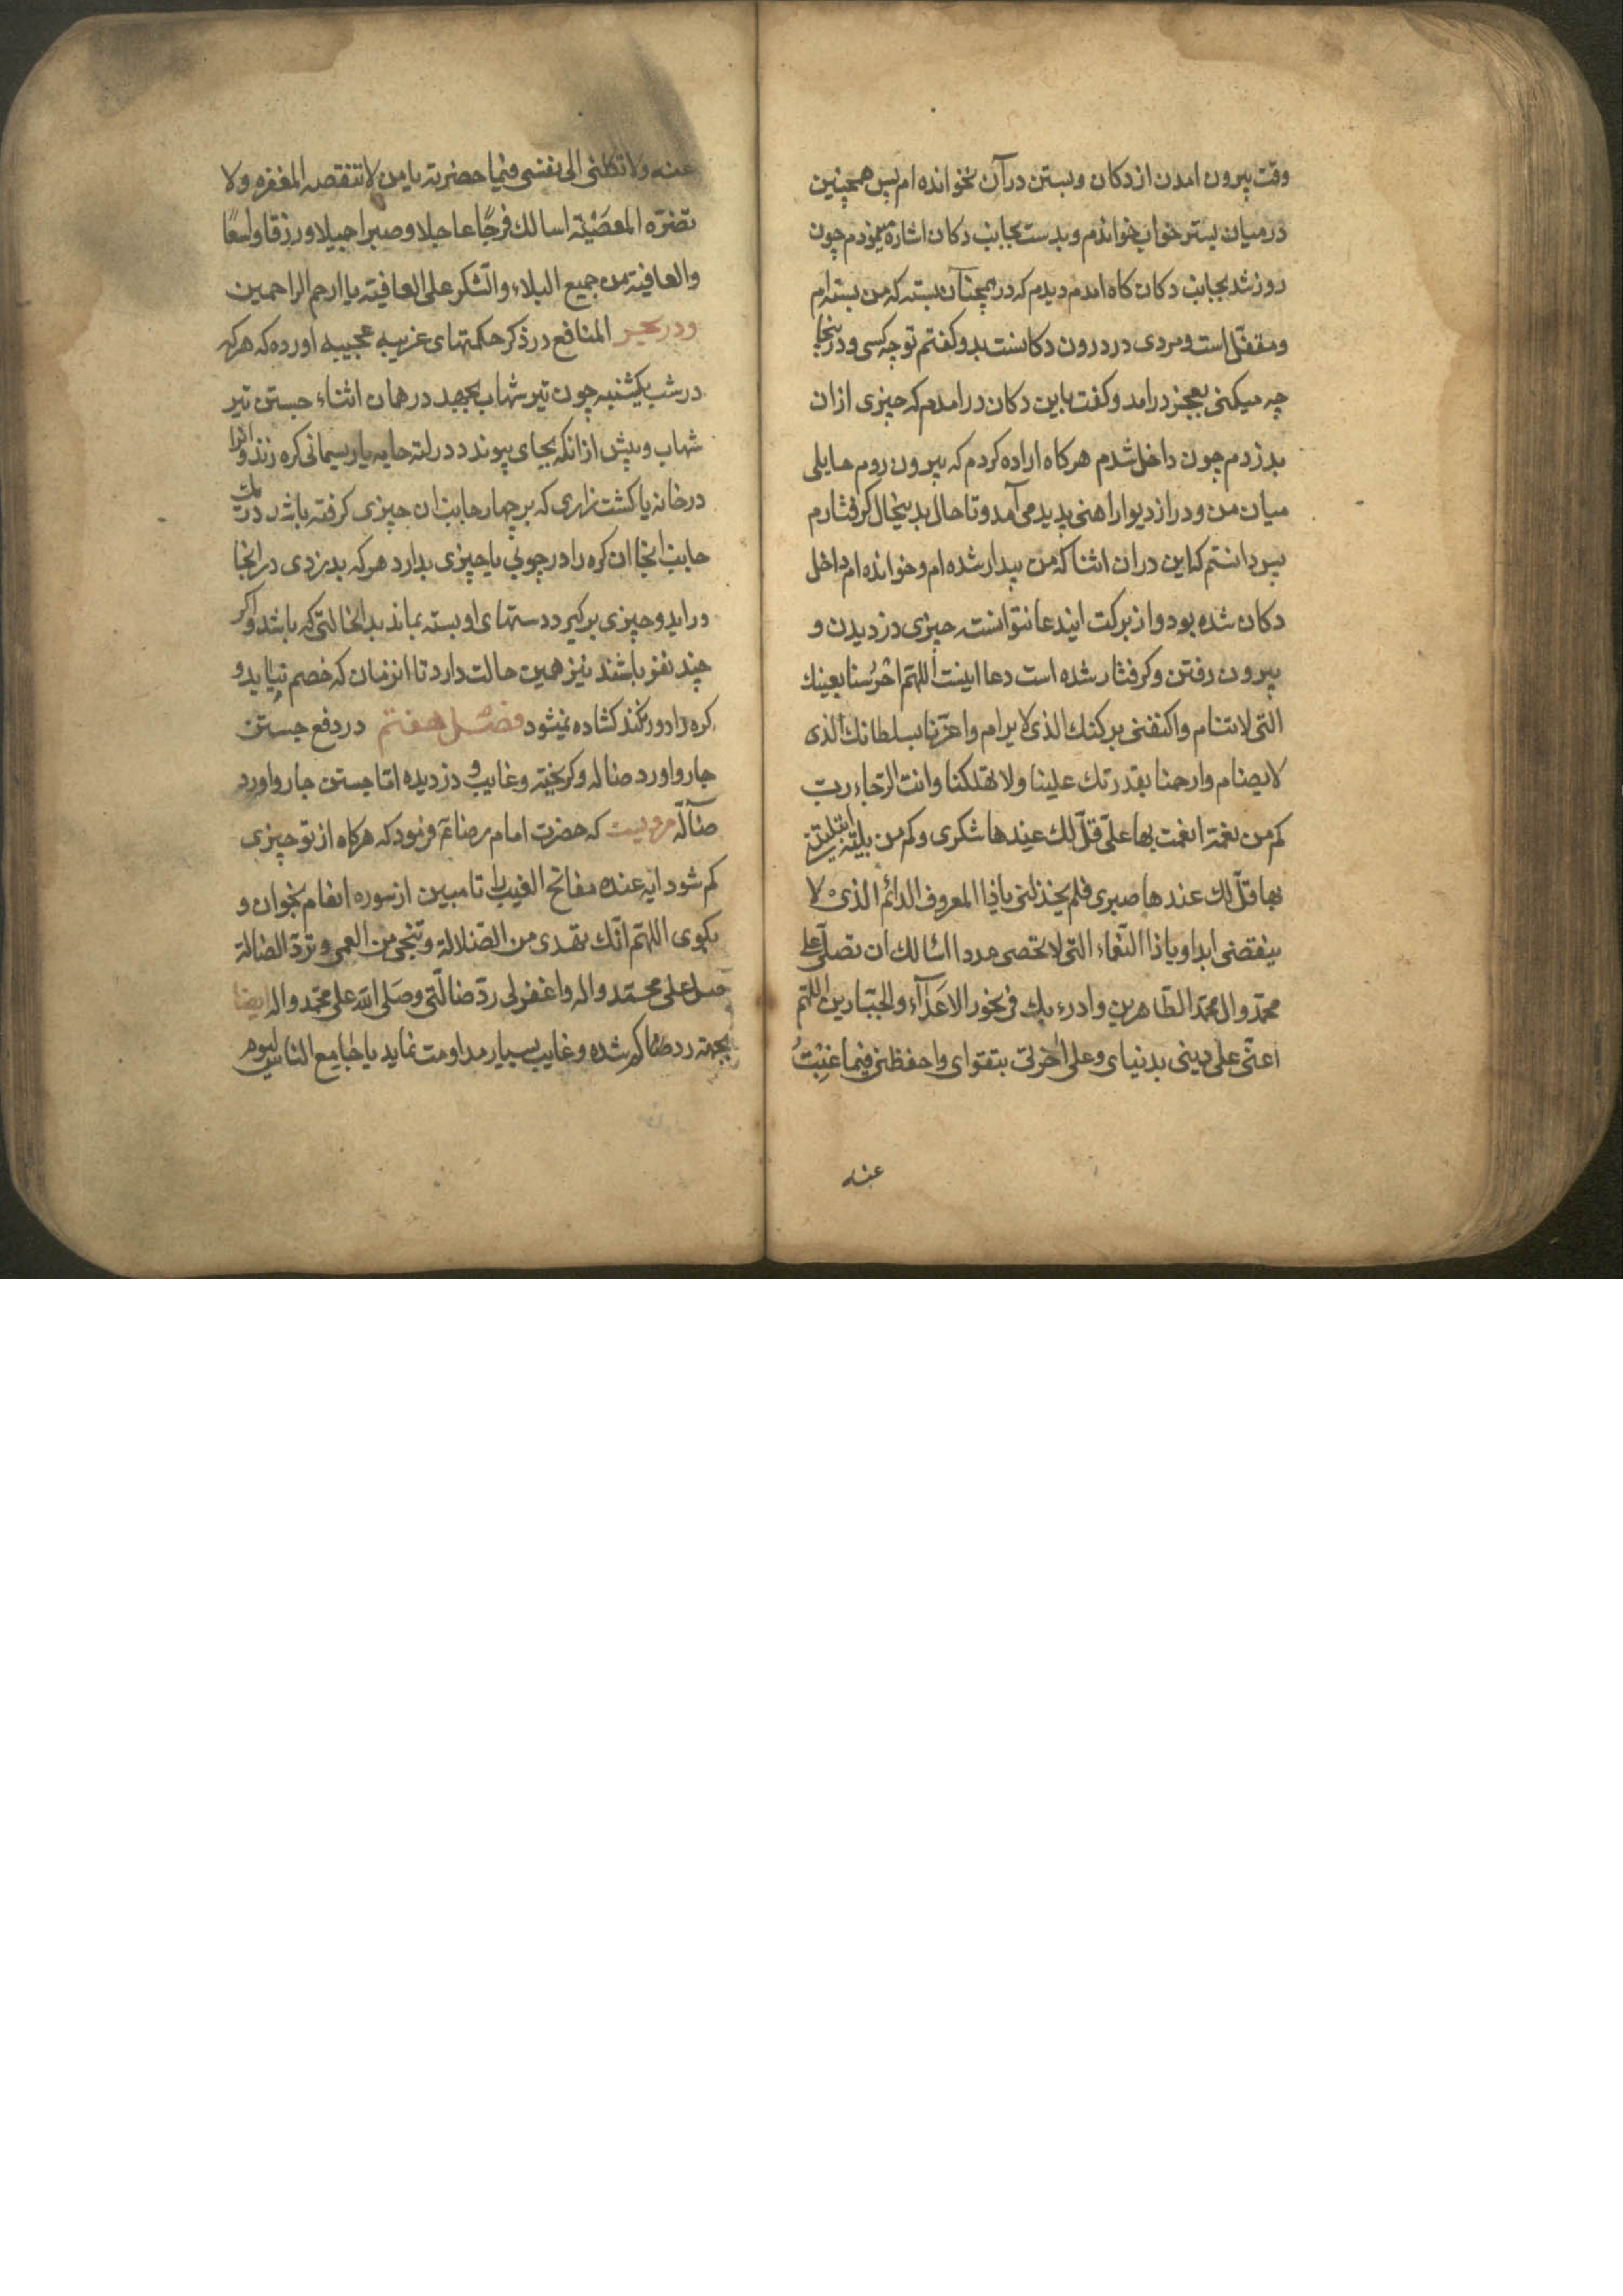 وقت بیرون امدن از دکان و بستن در آن نخوانده ام پس همچنین
در میان بستر خواب خواندم و بدست بجانب دکان اشاره نمودم چون
روز شد بجانب دکان کاه امدم دیدم که در همچنان بسته که من بسته ام
و مقفل است و مردی در درون دکانست بدو کفتم تو چه کسی و در ینجا
چه میکنی بعجز درامد و کفت باین دکان درامدم که چیزی از ان
بدزدم چون داخل شدم هر کاه اراده کردم که بیرون روم حایلی
میان من و در از دیوار اهنی پدید می آمد و تا حال بدینحال کرفتارم
پس دانستم که این در ان اثنا که من بیدار شده ام و خوانده ام داخل
دکان شده بود و از برکت ایندعا نتوانسته چیزی دزدیدن و
بیرون رفتن و کرفتار شده است دعا اینست اللهم احرسنا بعینك
التی لا تنام و اکنفنی برکنك الذی لا یرام و اعزنا بسلطانك الذی
لا یضام و ارحمنا بقدرتك علینا و لا تهلکنا و انت الرجاء رب
کم من نعمة انعمت بها علی قل لك عندها شکری و کم من بلیة ابتلیتنی
بها قل لك عندها صبری فلم یخذلنی یاذا المعروف الدائم الذی لا
ینقضی ابدا و یاذا النعماء التی لا تحصی عددا اسالك ان تصلی علی
محمد و ال محمد الطاهرین و ادرء بك فی نحور الاعدآء و الجبارین اللهم
اعنی علی دینی بدنیای و علی اخرتی بتقوای و احفظنی فیما غبت
عنه
عنه و لا تکلنی الی نفسی فیما حضرته یا من لا تنقصه المغفره و لا
تضره المعصیة اسالك فرجا عاجلا و صبرا جمیلا و رزقا واسعا
و العافیة من جمیع البلاء و الشکر علی العافیة یا ارحم الراحمین
و در بحر المنافع در ذکر حکمتهای غریبه عجیبه اورده که هر که
در شب یکشنبه چون تیر شهاب بجهد در همان اثناء جستن تیر
شهاب و پیش از انکه بجای پیوندد در لته جامه یا ریسمانی کره زند و انرا
در خانه یا کشت زاری که بر چهار جانب ان چیزی کرفته باشد در یك
جانب انجا ان کره را در چوبی یا چیزی بدارد هر که بدزدی در انجا
دراید و چیزی بر کیرد دستهای او بسته بماند بدانحالتی که باشد و اکر
چند نفر باشند نیز همین حالت دارد تا انزمان که خصم نیاید و
کره را دور نکند کشاده نمیشود فصل هفتم در دفع جستن
جاروا و رد ضاله و کریخته و غایب و دزدیده اما جستن جاروا و رد
ضآله مرویست که حضرت امام رضا ع فرمود که هر کاه از تو چیزی
کم شود ایه عنده مفاتح الغیب را تا مبین از سوره انعام بخوان و
بکوی اللهم انك تهدی من الضلالة و تنجی من العمی و ترد الضالة
صل علی محمد و اله و اغفر لی رد ضالتی و صلی الله علی محمد و اله ایضا
بجهة رد ضاله کم شده و غایب بسیار مداومت نماید یا جامع الناس لیوم